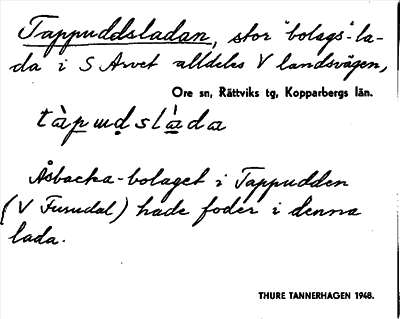 Tappuddsladan, stor "bolags"-la-
da i S Arvet alldeles V landsvägen,
Ore sn, Rättviks tg, Kopparbergs län.
tàpuḍslàda
Åsbacka-bolaget i Tappudden
(V Furudal) hade foder i denna
lada.
THURE TANNERHAGEN 1948.